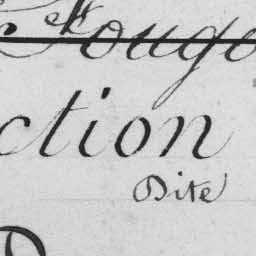 & Fougè
ction
Dite